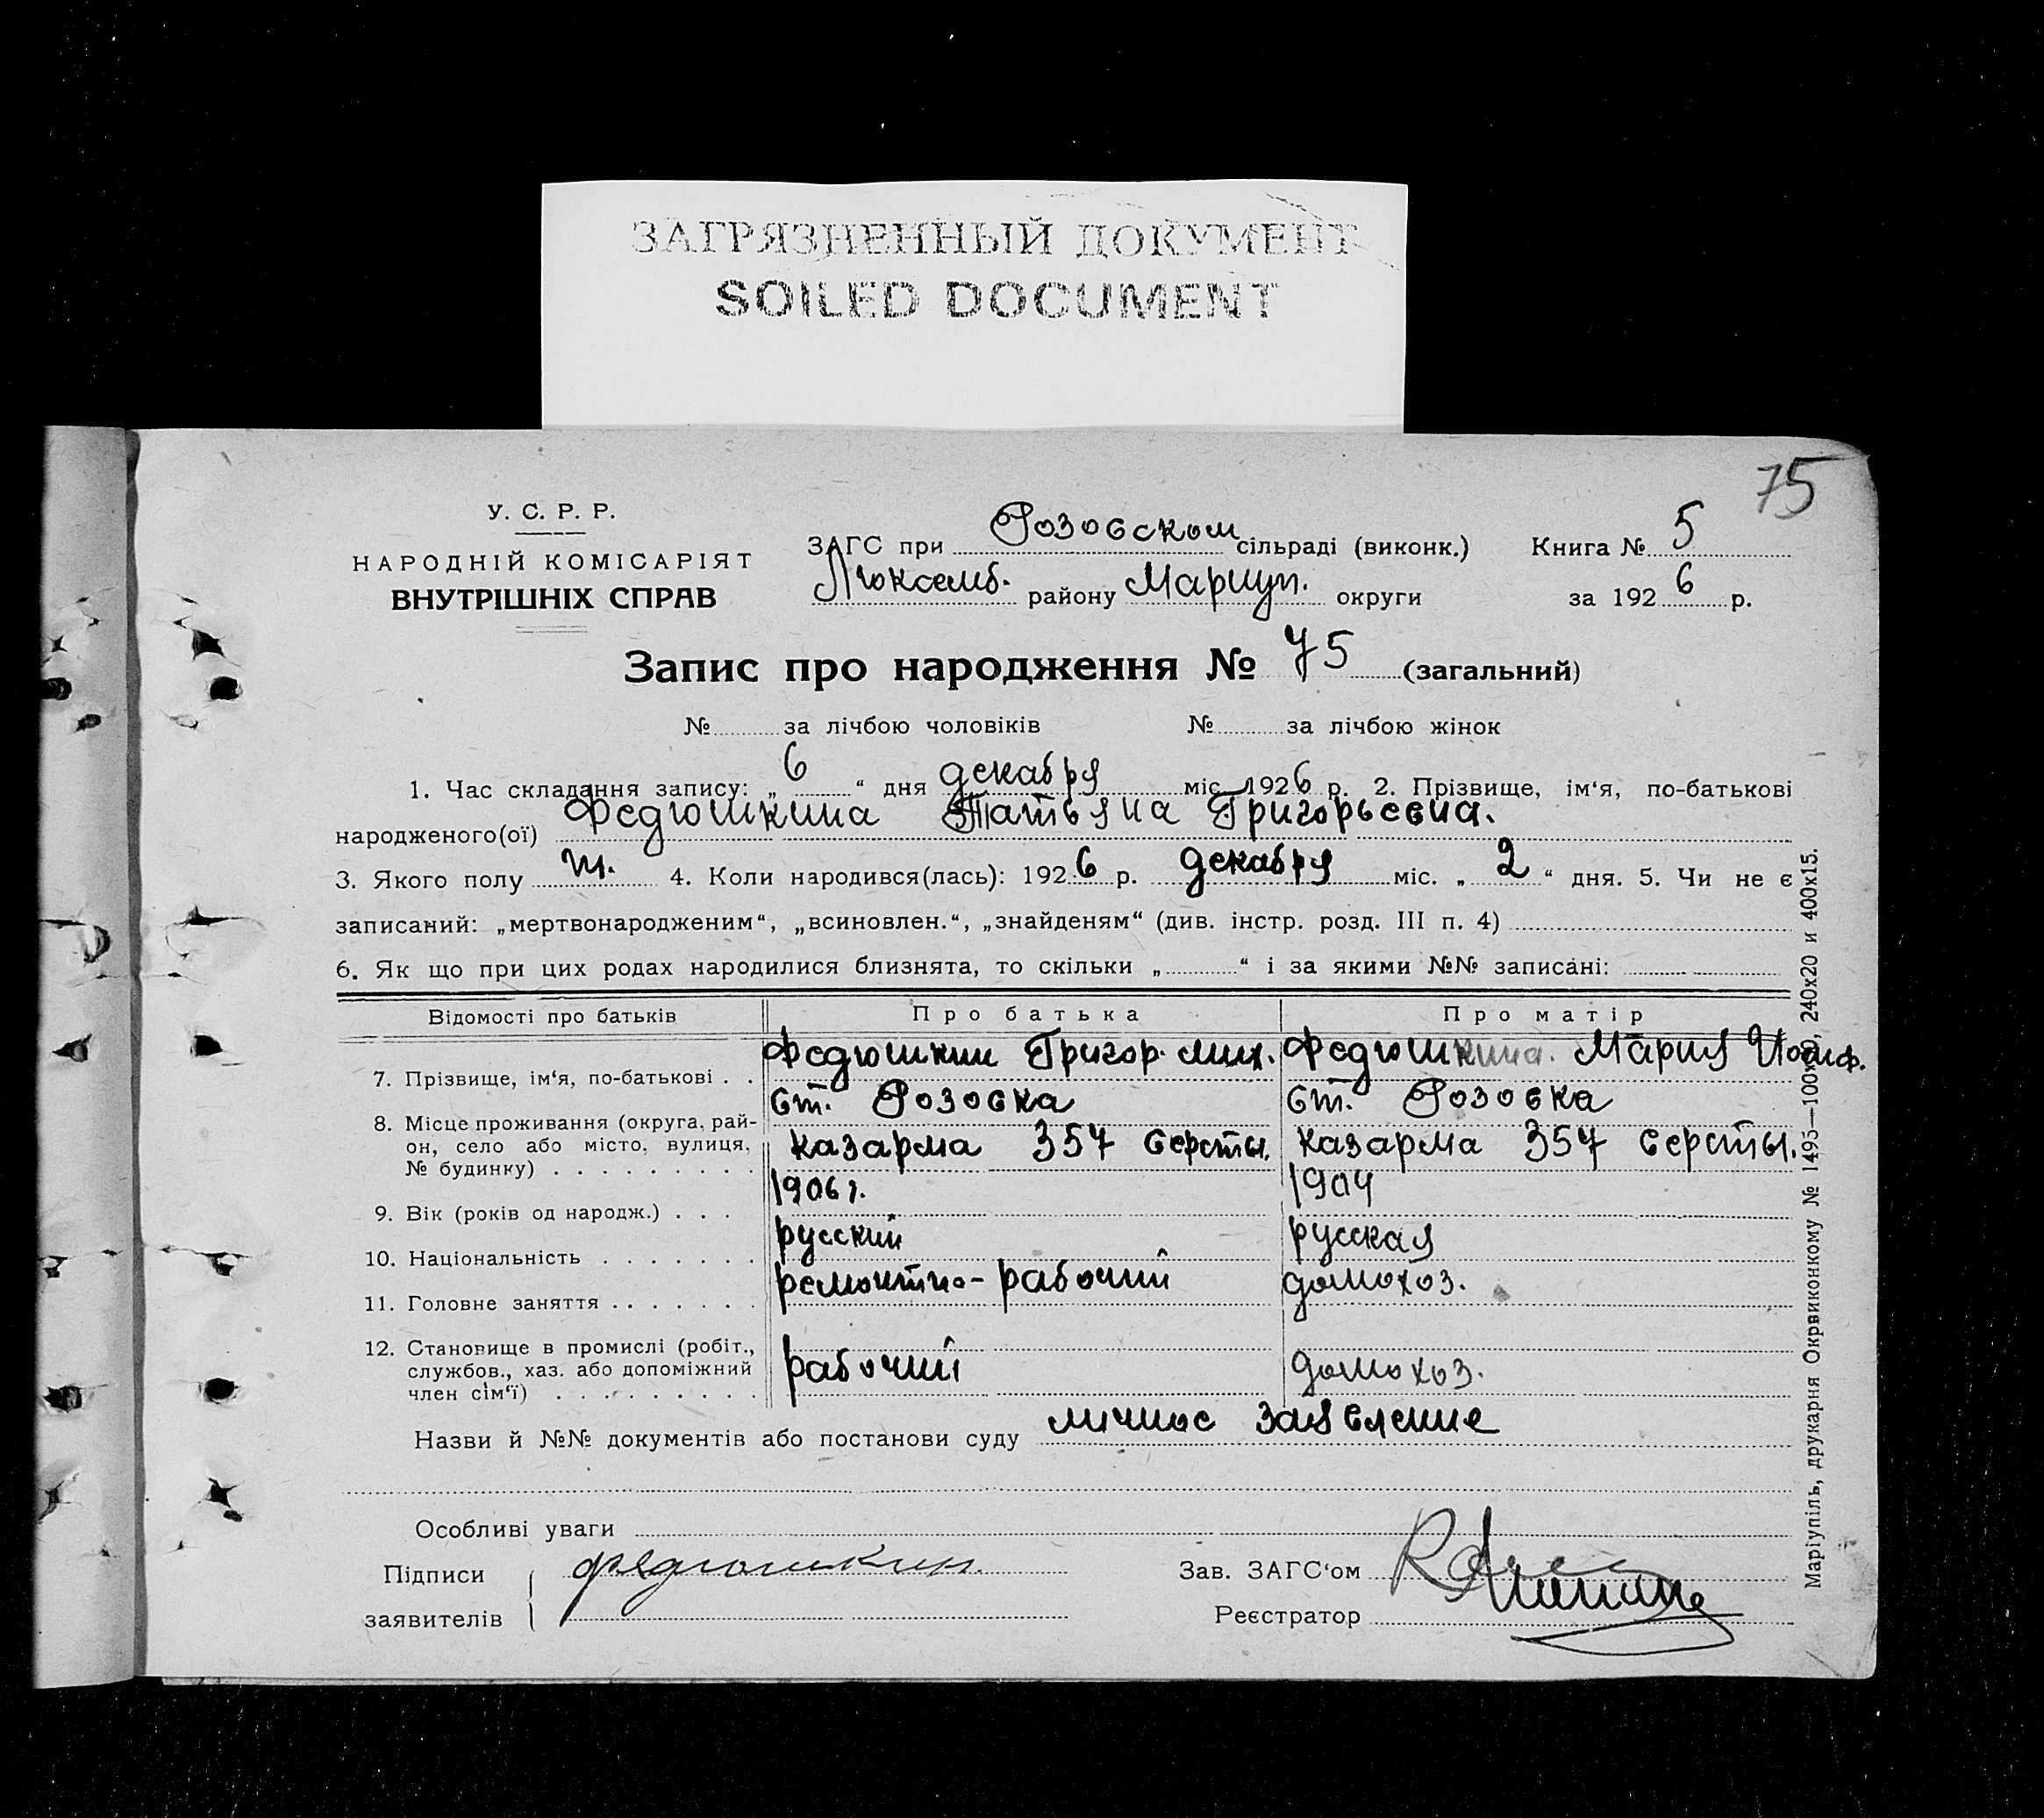 ЗАГРЯЗНЕННЫЙ ДОКУМЕНТ
SOILED DOCUMENT
75
У. С. Р. Р.
НАРОДНІЙ КОМІСАРІЯТ
ВНУТРІШНІХ СПРАВ
ЗАГС при Розовском сільраді (виконк.) Книга № 5
Люксемб. району Мариуп. округи за 1926 р.
Запис про народження № 75 (загальний)
№ за лічбою чоловіків № за лічбою жінок
1. Час складання запису: „6“ дня декабря міс. 1926 р. 2. Прізвище, ім‘я, по-батькові
народженого(ої) Федюшкина Татьяна Григорьевна.
3. Якого полу 4. Коли народився(лась): 1926 р. декабря міс. „2“ дня. 5. Чи не є
записаний: „мертвонародженим“, „всиновлен.“, „знайденям“ (див. інстр. розд. III п. 4)
6. Як що при цих родах народилися близнята, то скільки „ “ і за якими №№ записані:
Відомості про батьків Про батька Про матір
7. Прізвище, ім‘я, по-батькові . . Федюшкин Григор. Мих. Федюшкина. Мария Иосиф.
8. Місце проживання (округа, рай-
он, село або місто, вулиця,
№ будинку) . . . . . . . . .
ст. Розовка
казарма 357 версты.
ст. Розовка
казарма 357 версты.
9. Вік (років од народж.) . . . 1906 г. 1904
10. Національність . . . . . . . русский русская
11. Головне заняття . . . . . . . ремонтно-рабочий домохоз.
12. Становище в промислі (робіт.,
службов., хаз. або допоміжний
член сім‘ї) . . . . . . . . .
рабочий домохоз.
Назви й №№ документів або постанови суду личное заявление
Особливі уваги
Підписи
заявителів
федюшкин.
Зав. ЗАГС‘ом
Реєстратор
Маріупіль, друкарня Окрвиконкому № 1495—100х100, 240х20 и 400х15.